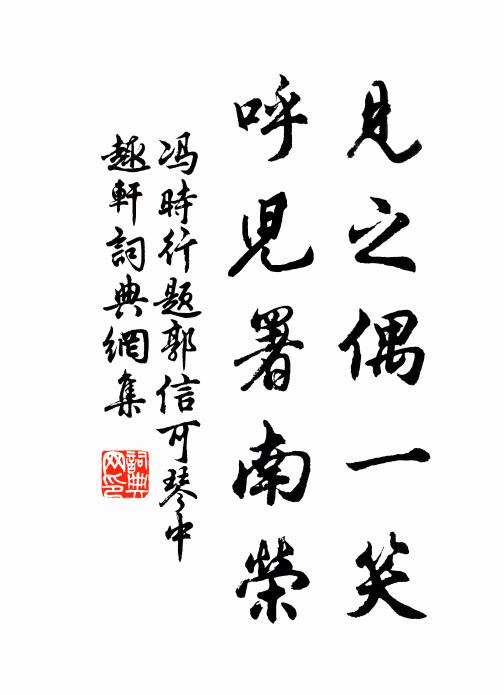 見之偶一笑
呼児署南榮
冯時行题郭信可琴中
趣軒詞典網集
詞典
网印